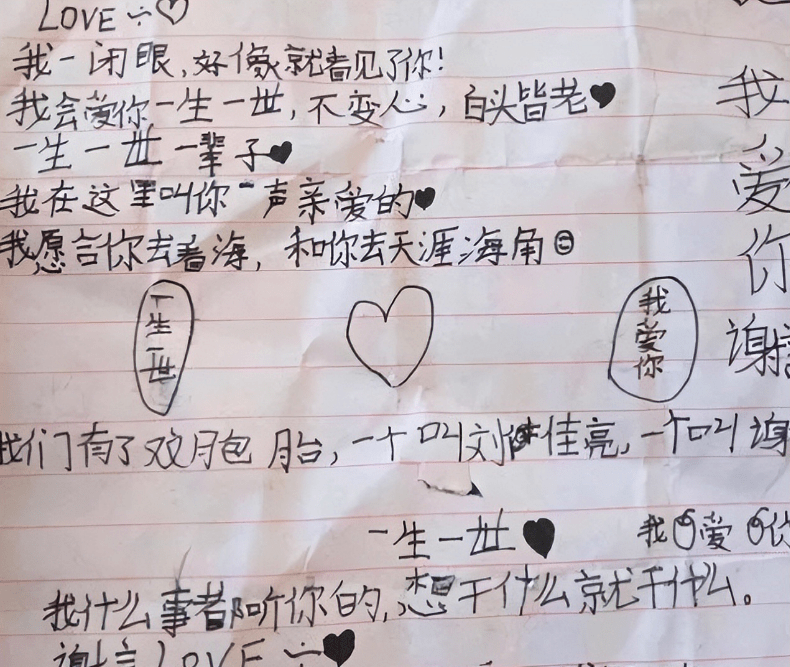 LOVE ÷♡
我一闭眼,好像就看见了你!
我会爱你一生一世,不变心,白头皆老♥
一生一世一辈子♥
我在这里叫你一声亲爱的♥
我愿言你去看海,和你去天涯海角☺
一生一世
我爱你
我爱你谢
我们有了双月包胎,一个叫刘佳亮,一个叫谢
一生一世♥
我爱你
我什么事都听你的,想干什么就干什么。
LOVE ÷♥